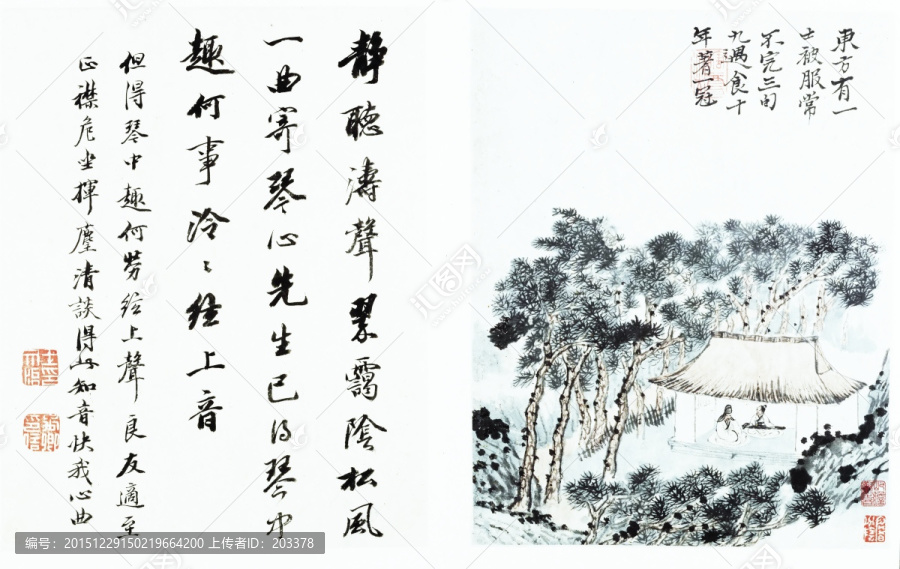 東方有一
士被服常
不完三旬
九遇食十
年著一冠
靜聽濤聲翠靄陰松風
一曲寄琴心先生已得琴中
趣何事泠〻絃上音
但得琴中趣何勞絃上聲良友適至
正襟危坐揮麈清談得此知音快我心曲
编号：20151229150219664200 上传者ID：203378